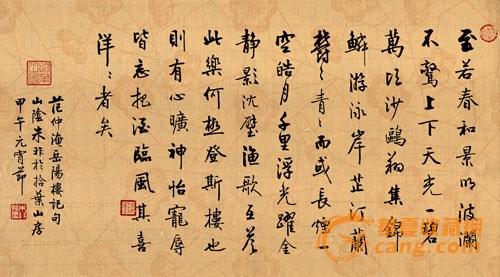 至若春和景明波瀾
不驚上下天光一碧
萬頃沙鷗翔集錦
鱗游泳岸芷汀蘭
鬱〻青〻而或長煙一
空皓月千里浮光躍金
静影沈璧漁歌互答
此樂何極登斯樓也
則有心曠神怡寵辱
皆忘把酒臨風其喜
洋〻者矣
范仲淹岳陽樓記句
山陰朱非於拾葉山房
甲午元宵節
華夏收藏网
cang.com